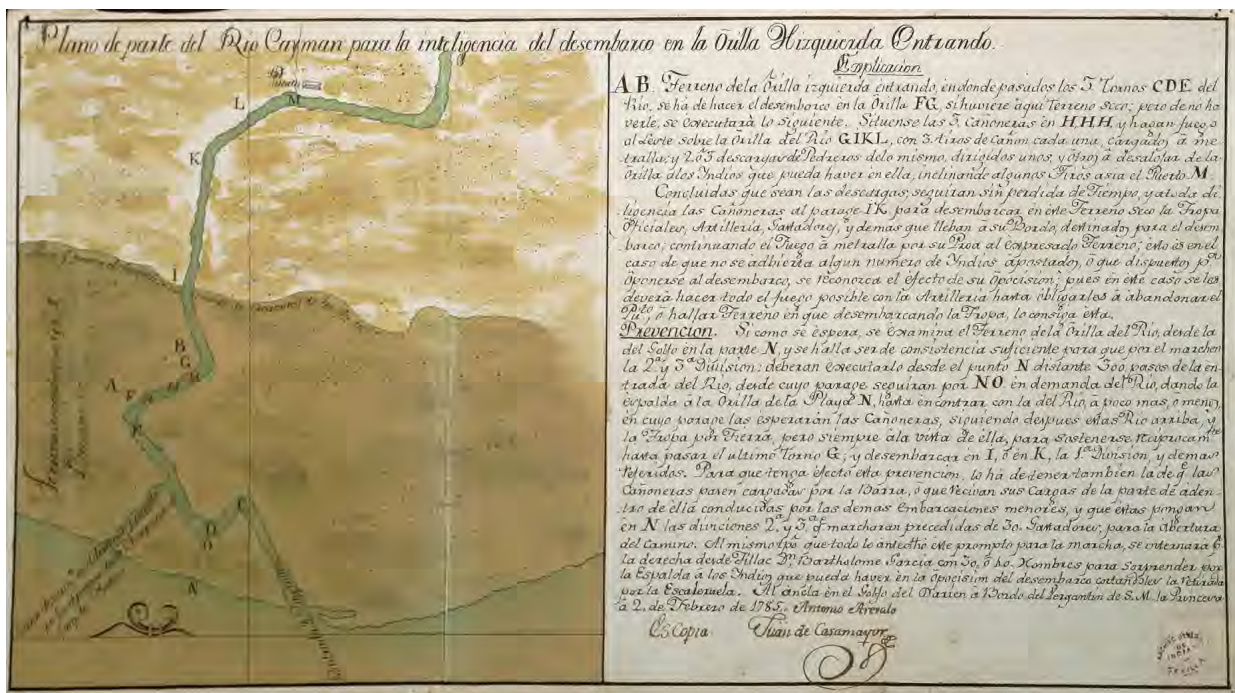 Plano de parte del Rio Cayman para la inteligencia del desembarco en la Orilla Hizquierda Entrando.
Explicacion
A B. Terreno de la Orilla izquierda entrando, en donde pasados los 3 Tornos CDE del
Rio, se há de hacer el desembarco en la Orilla FG, si huviere aqui Terreno seco; pero de no ha
verle, se executará lo siguiente. Situense las 3 Cañoneras en H,H,H, y hagan fuego
al Leste sobre la Orilla del Rio GIKL, con 3 tiros de Cañon cada una, cargados á me
tralla; y 2 ó 3 descargas de Pedreros de lo mismo, dirigidos unos, y otros á desalojar de la
Orilla á los Indios que pueda haver en ella, inclinando algunos tiros asia el Puerto M.
Concluidas que sean las descargas; seguiran sin perdida de Tiempo, y a toda di
ligencia las Cañoneras al parage IK para desembarcar en este Terreno seco la Tropa
Oficiales, Artilleria, Gastadores, y demas que lleban a su Bordo, destinados para el desem
barco; continuando el Fuego á metralla por su Proa al expresado Terreno; esto es en el
caso de que no se adbierta algun numero de Indios apostados, ó que dispuestos pª
oponerse al desembarco, se reconozca el efecto de su oposicion; pues en este caso se les
deverá hacer todo el fuego posible con la Artilleria hasta obligarles á abandonar el
Pto, ó hallar Terreno en que desembarcando la Tropa, lo consiga esta.
Prevencion. Si como se espera, se examina el Terreno de la Orilla del Rio, desde la
del Golfo en la parte N, y se halla ser de consistencia suficiente para que por el marchen
la 2ª y 3ª Division; deberan executarlo desde el punto N distante 300 pasos de la en
trada del Rio, desde cuyo parage seguiran por NO en demanda del Rio, dando la
espalda á la Orilla de la Playa N, hasta encontrar con la del Rio, á poco mas, o menos,
en cuyo parage las esperarán las Cañoneras, siguiendo despues estas Rio arriba, y
la Tropa por Tierra, pero siempre á la vista de ella, para sostenerse reciprocamte
hasta pasar el ultimo Torno G; y desembarcar en I, ó en K, la 1ª Division, y demas
referidos. Para que tenga efecto esta prevencion, lo há de tener tambien la de q las
Cañoneras pasen cargadas por la Barra, ó que recivan sus Cargas de la parte de aden
tro de ella conducidas por las demas Embarcaciones menores, y que estas pongan
en N las diviciones 2ª y 3ª q marcharan precedidas de 30 Gastadores, para la abertura
del Camino. Al mismo tpo que todo lo antedho esté prompto para la marcha, se internará p
la derecha desde Dn Bartholome Garcia con 30, ó 40 Hombres para sorprender por
la Espalda á los Indios que pueda haver en la oposicion del desembarco la retirada
por la Escaleruela. Al ancla en el Golfo del Darien a Bordo del Bergantin de S.M. la Princesa
á 2 de Febrero de 1785. Antonio Arevalo
Es Copia Juan de Casamayor
L
M
K
I
B
G
H
A
F
H
E
C
D
O
N
Entrando
ARCHIVO GENERAL
DE
INDIAS
SEVILLA